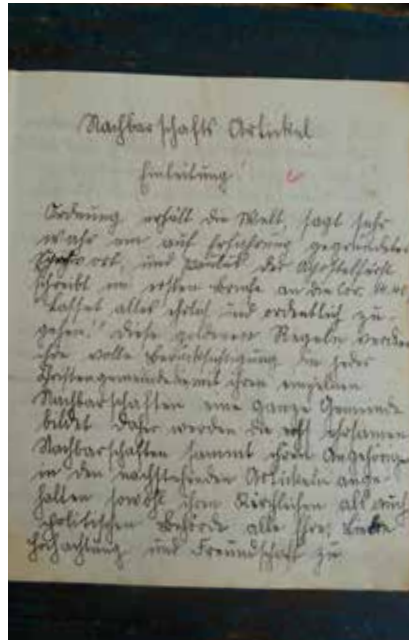 Nachbarschafts Artickel
Einleitung
Ordnung erhält die Welt, sagt sehr
wahr ein auf Erfahrung gegründetes
und Paulus der Apostelfürst
schreibt im ersten Briefe an die Cor. 14.40
"Lasset alles ehrlich und ordentlich zu-
gehen." Diese goldenen Regeln verdienen
ihre volle Berücksichtigung in jeder
Christengemeinde mit ihren einzelnen
Nachbarschaften eine ganze Gemeinde
bildet Daher werden die ehrsamen
Nachbarschaften sammt ihren Angehörigen
in den nachstehenden Artickeln ange-
halten sowohl ihren Kirchlichen als auch
politischen Behörde alle Ihre Liebe
Hochachtung und Freundschaft zu